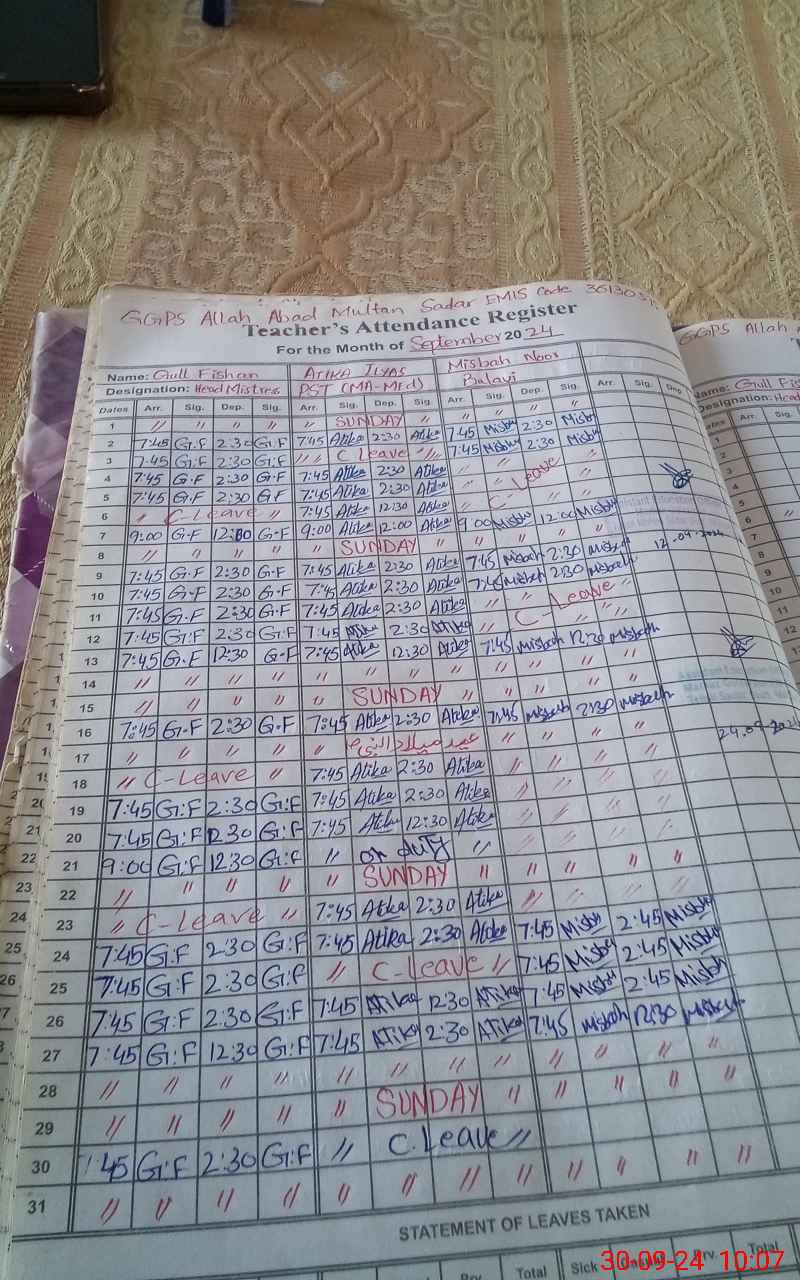 GGPS Allah Abad Multan Sadar EMIS Code
Teacher's Attendance Register
For the Month of September 2024
Name: Gull Fishan ATIKA ILYAS Misbah Noor
Designation: Head Mistress PST (MA-M.Ed) Balavi
Dates Arr. Sig. Dep. Sig. Arr. Sig. Dep. Sig. Arr. Sig. Dep. Sig. Arr. Sig. Dep
1 〃 〃 〃 〃 〃 SUNDAY 〃 〃 〃 〃 〃
2 7:45 G.F 2:30 G.F 7:45 Atika 2:30 Atika 7:45 Misby 2:30 Misby
3 7:45 G.F 2:30 G.F 〃 〃 C Leave 〃 7:45 Misby 2:30 Misby
4 7:45 G.F 2:30 G.F 7:45 Atika 2:30 Atika 〃 〃 〃
5 7:45 G.F 2:30 G.F 7:45 Atika 2:30 Atika 〃 C-Leave 〃
6 〃 C Leave 〃 7:45 Atika 12:30 Atika 〃 〃 〃
7 9:00 G.F 12:00 G.F 9:00 Atika 12:00 Atika 9:00 Misby 12:00 Misby
8 〃 〃 〃 〃 〃 SUNDAY 〃 〃 〃 〃 〃
9 7:45 G.F 2:30 G.F 7:45 Atika 2:30 Atika 7:45 Misbah 2:30 Misbah
10 7:45 G.F 2:30 G.F 7:45 Atika 2:30 Atika 7:45 Misbah 2:30 misbah
12.09.2024
11 7:45 G.F 2:30 G.F 7:45 Atika 2:30 Atika 〃 〃 〃
12 7:45 G.F 2:30 G.F 7:45 Atika 2:30 Atika 〃 C-Leave 〃
13 7:45 G.F 12:30 G.F 7:45 Atika 12:30 Atika 7:45 misbah 12:30 misbah
14 〃 〃 〃 〃 〃 〃 〃 〃 〃 〃 〃 〃
15 〃 〃 〃 〃 〃 SUNDAY 〃 〃 〃 〃 〃
16 7:45 G.F 2:30 G.F 7:45 Atika 2:30 Atika 7:45 misbah 2:30 misbah
24.09.2024
17 〃 〃 〃 〃 〃 عید میلاد النبی 〃 〃 〃 〃
18 〃 C-Leave 〃 7:45 Atika 2:30 Atika 〃 〃 〃 〃
19 7:45 G.F 2:30 G.F 7:45 Atika 2:30 Atika 〃 〃 〃 〃
20 7:45 G.F 12:30 G.F 7:45 Atika 12:30 Atika 〃 〃 〃 〃
21 9:00 G.F 12:30 G.F 〃 on duty 〃 〃 〃 〃 〃
22 〃 〃 〃 〃 〃 SUNDAY 〃 〃 〃 〃 〃
23 〃 C-Leave 〃 7:45 Atika 2:30 Atika 〃 〃 〃 〃
24 7:45 G.F 2:30 G.F 7:45 Atika 2:30 Atika 7:45 Misby 2:45 Misby
25 7:45 G.F 2:30 G.F 〃 C-Leave 〃 7:45 Misby 2:45 Misby
26 7:45 G.F 2:30 G.F 7:45 Atika 12:30 Atika 7:45 Misby 2:45 Misby
27 7:45 G.F 12:30 G.F 7:45 Atika 2:30 Atika 7:45 misbah 12:30 misbah
28 〃 〃 〃 〃 〃 〃 〃 〃 〃 〃 〃 〃
29 〃 〃 〃 〃 〃 SUNDAY 〃 〃 〃 〃 〃
30 7:45 G.F 2:30 G.F 〃 C.Leave 〃
31 〃 〃 〃 〃 〃 〃 〃 〃 〃 〃 〃 〃
STATEMENT OF LEAVES TAKEN
Total Sick Total
GGPS Allah
Name: Gull Fis
Designation: Head
Dates Arr.
30-09-24 10:07